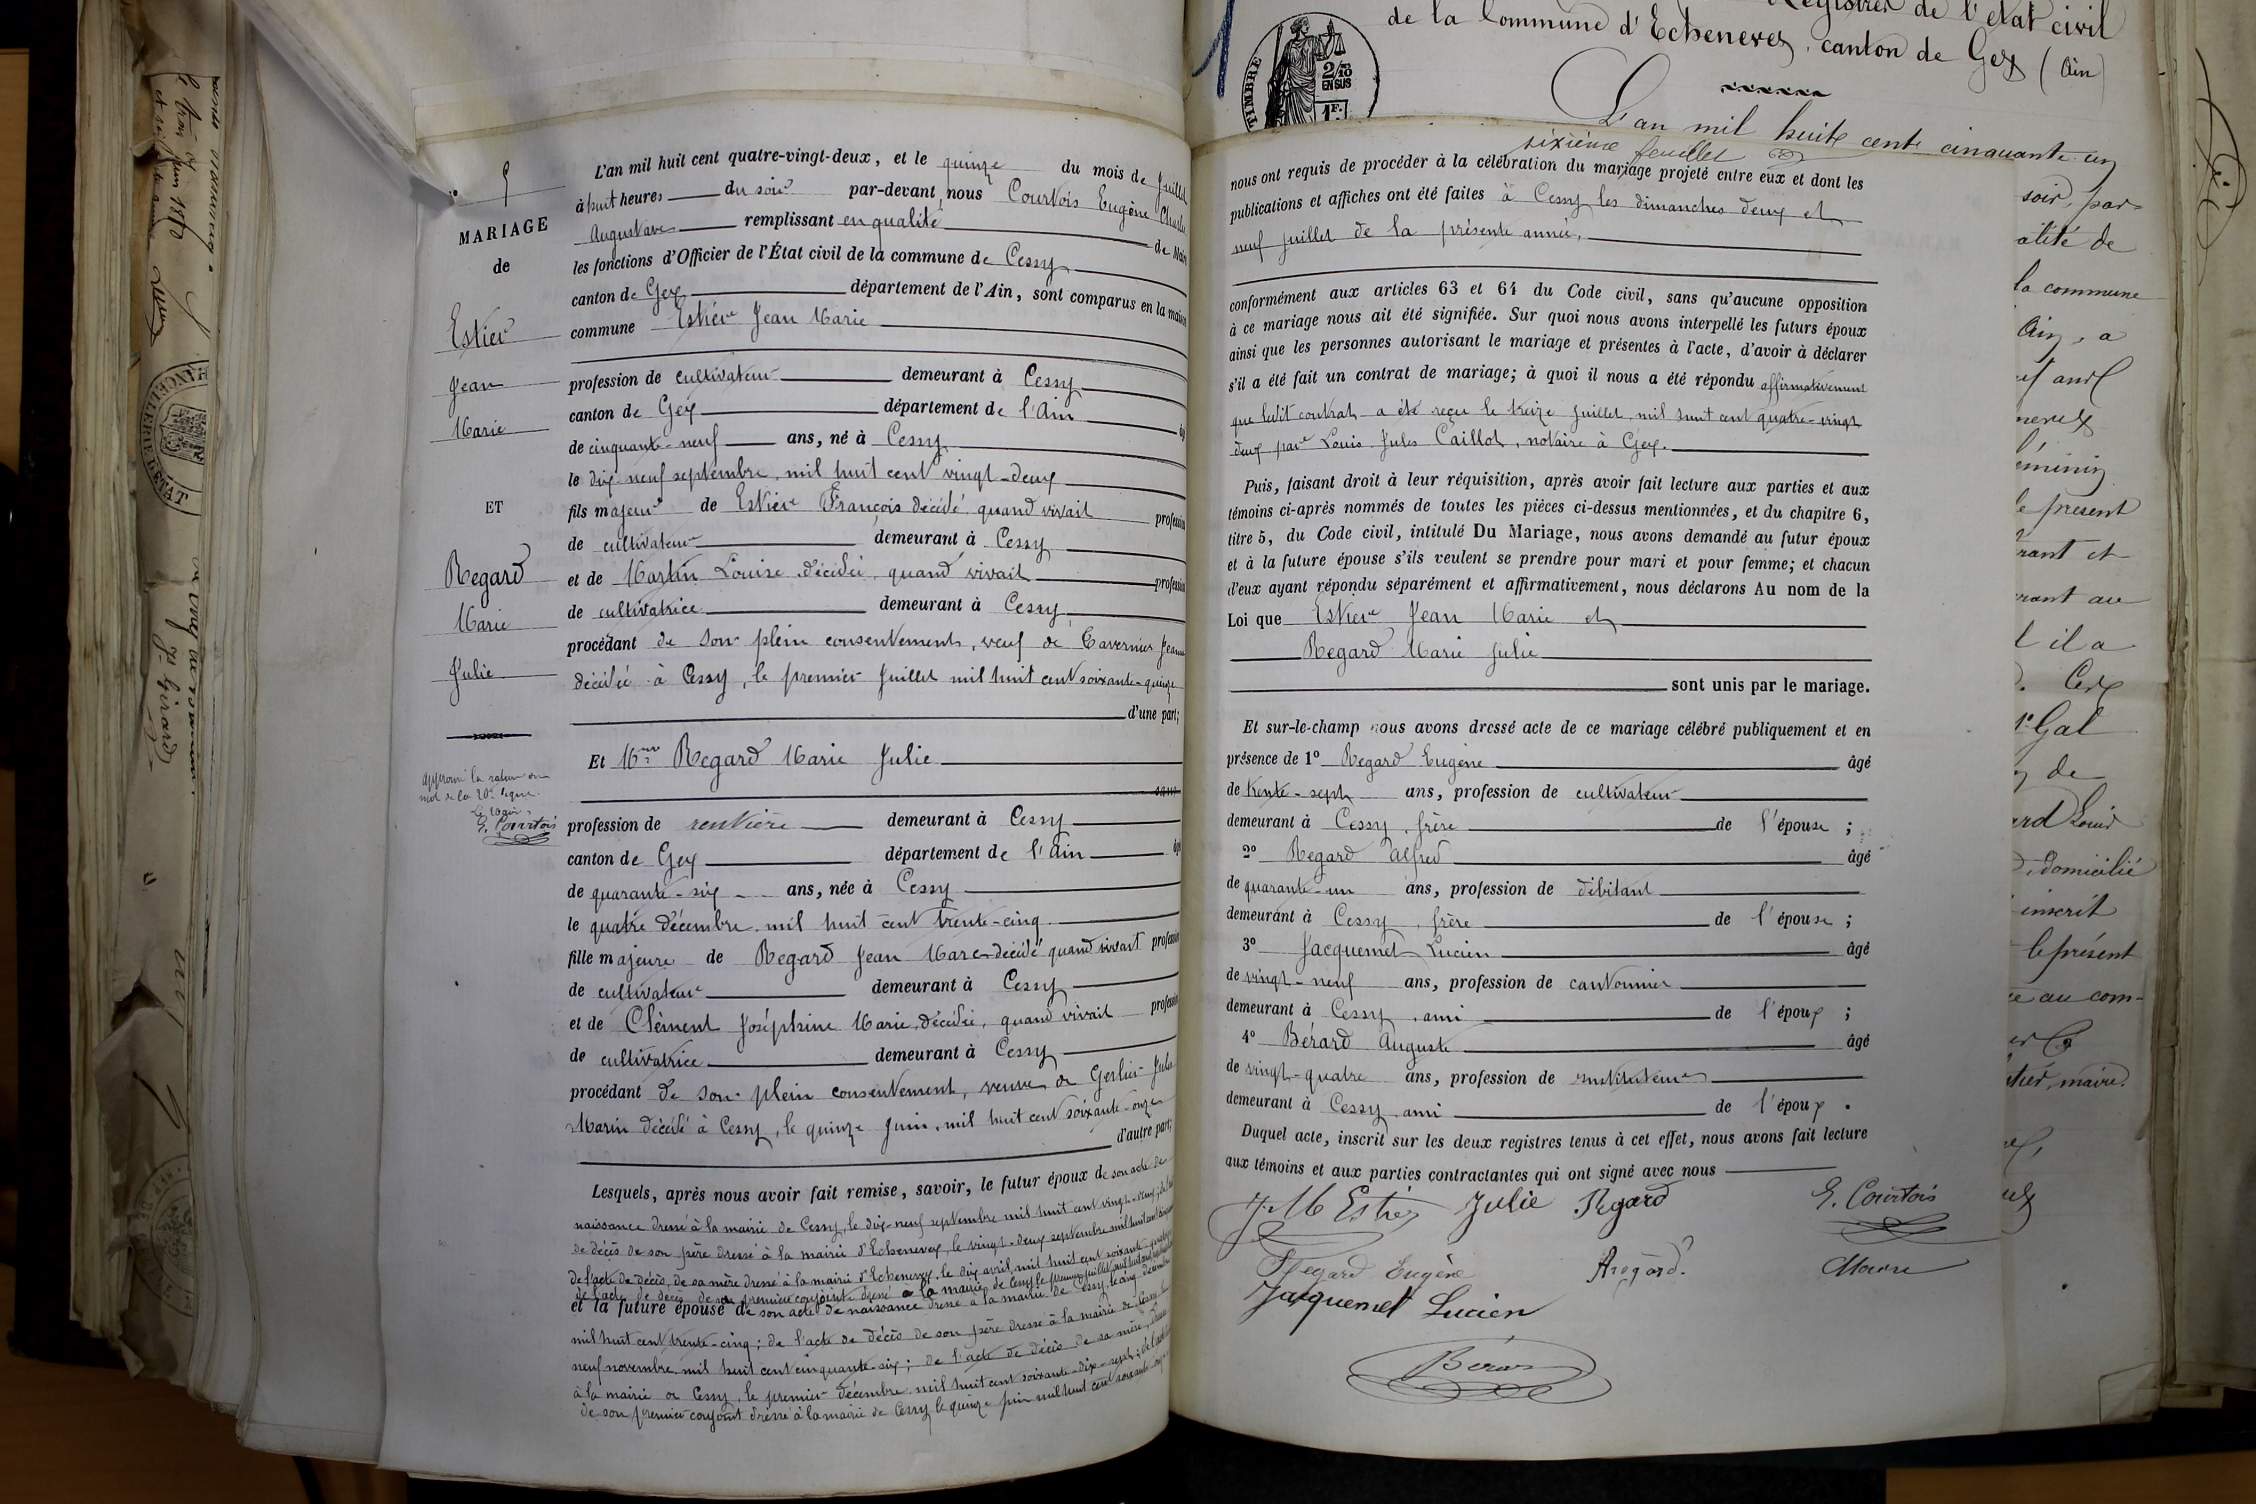 5
MARIAGE
de
Estier
Jean
Marie
ET
Regard
Marie
Julie
approuvé la rature
mot de la 20e ligne.
Le Maire,
E. Courtois
L'an mil huit cent quatre-vingt-deux, et le quinze du mois de Juillet
à huit heures du soir par-devant nous Courtois Eugène Charles
Augustave remplissant en qualité de Maire
les fonctions d'Officier de l'État civil de la commune de Cessy
canton de Gex département de l'Ain, sont comparus en la maison
commune Estier Jean Marie
profession de cultivateur demeurant à Cessy
canton de Gex département de l'Ain âgé
de cinquante-neuf ans, né à Cessy
le dix-neuf septembre mil huit cent vingt-deux
fils majeur de Estier François décédé, quand vivait profession
de cultivateur demeurant à Cessy
et de Martin Louise, décédée, quand vivait profession
de cultivatrice demeurant à Cessy
procédant de son plein consentement, veuf de Tavernier Jeanne
décédée à Cessy, le premier Juillet mil huit cent soixante-quinze
d'une part;
Et Mme Regard Marie Julie
profession de rentière demeurant à Cessy
canton de Gex département de l'Ain âgée
de quarante-six ans, née à Cessy
le quatre décembre mil huit cent trente-cinq
fille majeure de Regard Jean Marc décédé quand vivait profession
de cultivateur demeurant à Cessy
et de Clément Joséphine Marie, décédée, quand vivait profession
de cultivatrice demeurant à Cessy
procédant de son plein consentement, veuve de Gerlier Jules
Marin décédé à Cessy, le quinze juin, mil huit cent soixante-onze
d'autre part;
Lesquels, après nous avoir fait remise, savoir, le futur époux de son acte de
naissance dressé à la mairie de Cessy, le dix-neuf septembre mil huit cent vingt-deux; de l'acte
de décès de son père dressé à la mairie d'Echenevex, le vingt-deux septembre mil huit cent
de l'acte de décès de sa mère dressé à la mairie d'Echenevex, le dix avril mil huit cent soixante
de l'acte de décès de son premier conjoint dressé à la mairie de Cessy le premier juillet mil huit cent
et la future épouse de son acte de naissance dressé à la mairie de Cessy, le cinq décembre
mil huit cent trente-cinq; de l'acte de décès de son père dressé à la mairie de Cessy le
neuf novembre mil huit cent cinquante-six; de l'acte de décès de sa mère, dressé
à la mairie de Cessy, le premier décembre mil huit cent soixante-dix-sept; de l'acte
de son premier conjoint dressé à la mairie de Cessy le quinze juin mil huit cent soixante-onze
Registres de l'état civil
de la Commune d'Echenevex, canton de Gex (Ain)
TIMBRE
2/10
EN SUS
1F.
L'an mil huit cent cinquante un
sixième feuillet
nous ont requis de procéder à la célébration du mariage projeté entre eux et dont les
publications et affiches ont été faites à Cessy les dimanches deux et
neuf juillet de la présente année,
conformément aux articles 63 et 64 du Code civil, sans qu'aucune opposition
à ce mariage nous ait été signifiée. Sur quoi nous avons interpellé les futurs époux
ainsi que les personnes autorisant le mariage et présentes à l'acte, d'avoir à déclarer
s'il a été fait un contrat de mariage; à quoi il nous a été répondu affirmativement
que ledit contrat a été reçu le treize juillet mil huit cent quatre-vingt
deux par Louis Jules Caillot, notaire à Gex.
Puis, faisant droit à leur réquisition, après avoir fait lecture aux parties et aux
témoins ci-après nommés de toutes les pièces ci-dessus mentionnées, et du chapitre 6,
titre 5, du Code civil, intitulé Du Mariage, nous avons demandé au futur époux
et à la future épouse s'ils veulent se prendre pour mari et pour femme; et chacun
d'eux ayant répondu séparément et affirmativement, nous déclarons Au nom de la
Loi que Estier Jean Marie et
Regard Marie Julie
sont unis par le mariage.
Et sur-le-champ nous avons dressé acte de ce mariage célébré publiquement et en
présence de 1° Regard Eugène âgé
de trente-sept ans, profession de cultivateur
demeurant à Cessy, frère de l'épouse ;
2° Regard Alfred âgé
de quarante-un ans, profession de débitant
demeurant à Cessy, frère de l'épouse ;
3° Jacquemet Lucien âgé
de vingt-neuf ans, profession de cantonnier
demeurant à Cessy, ami de l'époux ;
4° Bérard Auguste âgé
de vingt-quatre ans, profession de instituteur
demeurant à Cessy ami de l'époux .
Duquel acte, inscrit sur les deux registres tenus à cet effet, nous avons fait lecture
aux témoins et aux parties contractantes qui ont signé avec nous
J. M Estier Julie Regard E. Courtois
Regard Eugène A regard. Maire
Jacquemet Lucien
Bérard
soir, par=
la commune
Ain, a
le present
rant et
l il a
de
domicilié
inscrit
le présent
te au com-
maire.